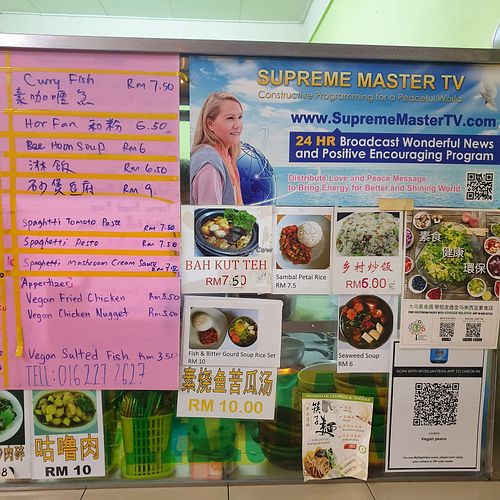 Curry Fish RM 7.50
素咖喱鱼
Hor Fan 和粉 6.50
Bee Hoon Soup RM 6
淋饭 RM 6.50
砂煲豆腐 RM 9.
Spaghetti Tomato Paste RM 7.50
Spaghetti Pesto RM 7.50
Spaghetti Mushroom Cream Sauce
Appertizer:
Vegan Fried Chicken RM 3.50
Vegan Chicken Nugget RM 3.60
Vegan Salted Fish RM 3.50
TELL: 016 227 2627
SUPREME MASTER TV
Constructive Programming for a Peaceful World
www.SupremeMasterTV.com
24 HR Broadcast Wonderful News
and Positive Encouraging Program
Distribute Love and Peace Message
to Bring Energy for Better and Shining World
BAH KUT TEH
RM7.50
Sambal Petai Rice
RM 7.5
乡村炒饭
RM6.00
素食
健康
環保
Fish & Bitter Gourd Soup Rice Set
RM 10
素烧鱼苦瓜汤
RM 10.00
Seaweed Soup
RM 6
SCAN WITH MYSEJAHTERA APP TO CHECK IN
Vegan peace
咕噜肉
RM 10